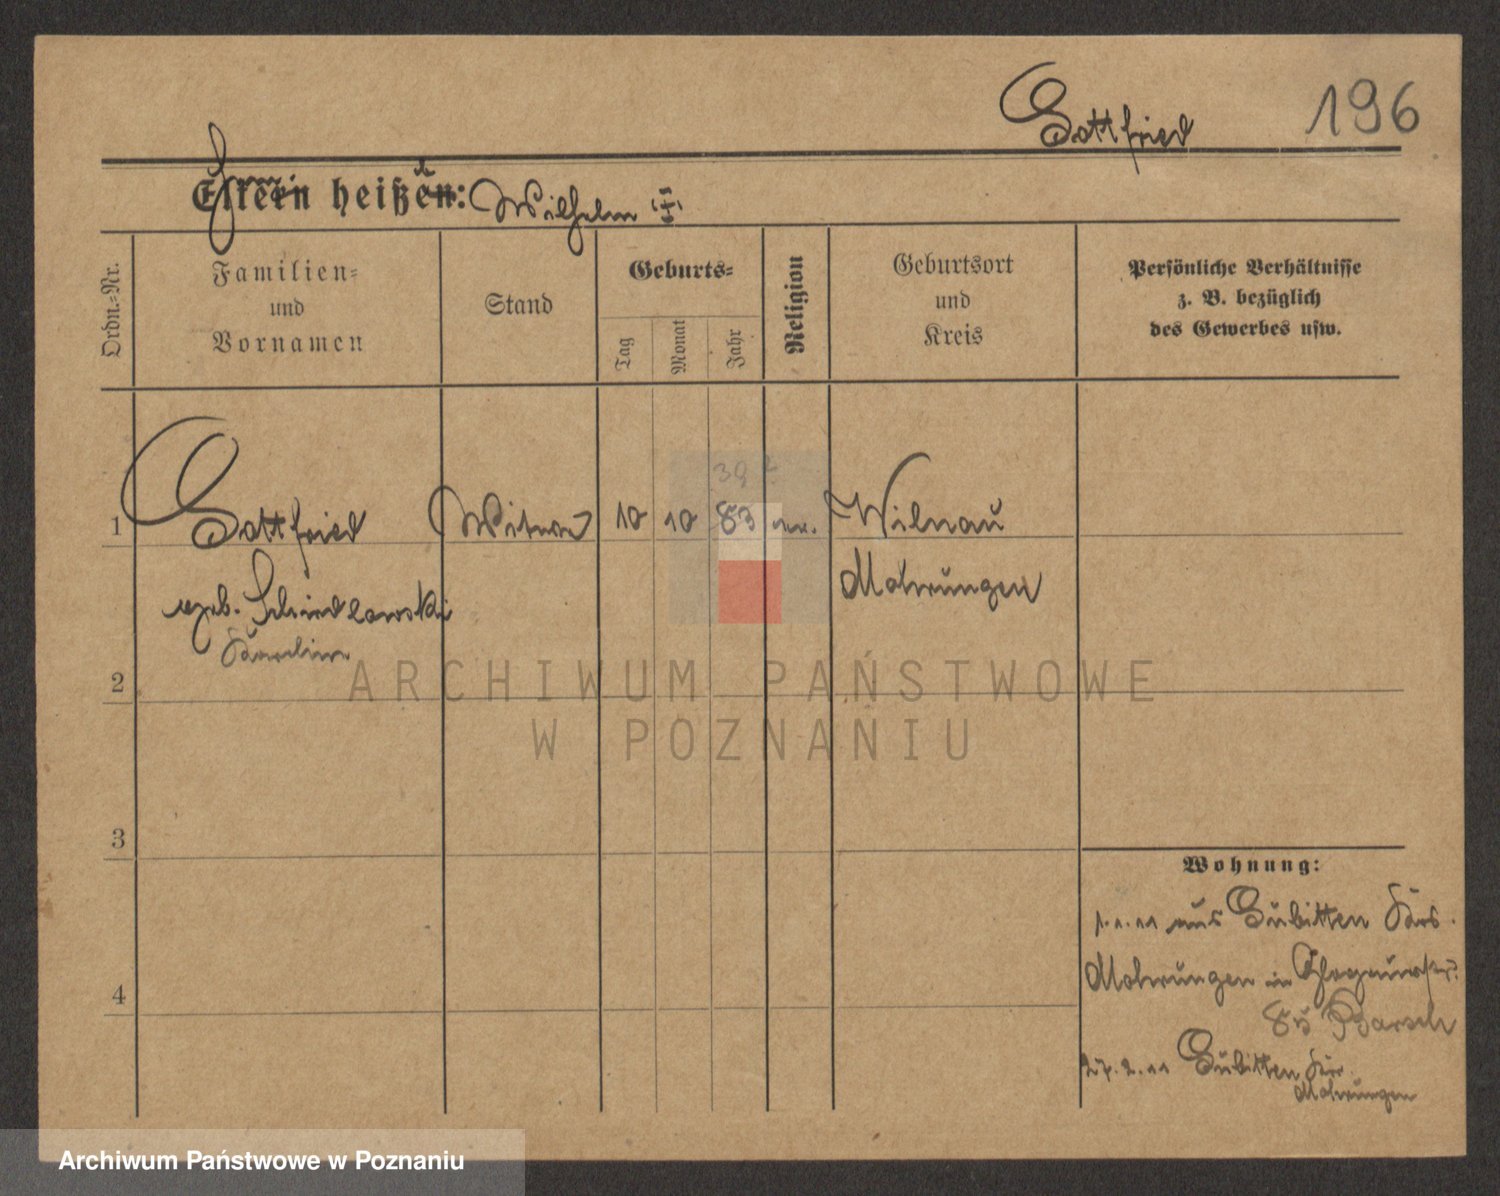 Gottfried 196
Eltern heißen: Wilhelm
Ordn.-Nr.
Familien-
und
Vornamen
Stand
Geburts-
Tag
Monat
Jahr
Religion
Geburtsort
und
Kreis
Persönliche Verhältnisse
z. B. bezüglich
des Gewerbes usw.
1 Gottfried Witwe 10 10 83 ev. Wilnau
geb. Schindlowski Mohrungen
Karoline
2
3
4
Wohnung:
1.1.11 aus Subitten Krs.
Mohrungen in Glogauerstr.
85 Barsch
27.2.11 Subitten Kr.
Mohrungen
ARCHIWUM PAŃSTWOWE
W POZNANIU
Archiwum Państwowe w Poznaniu